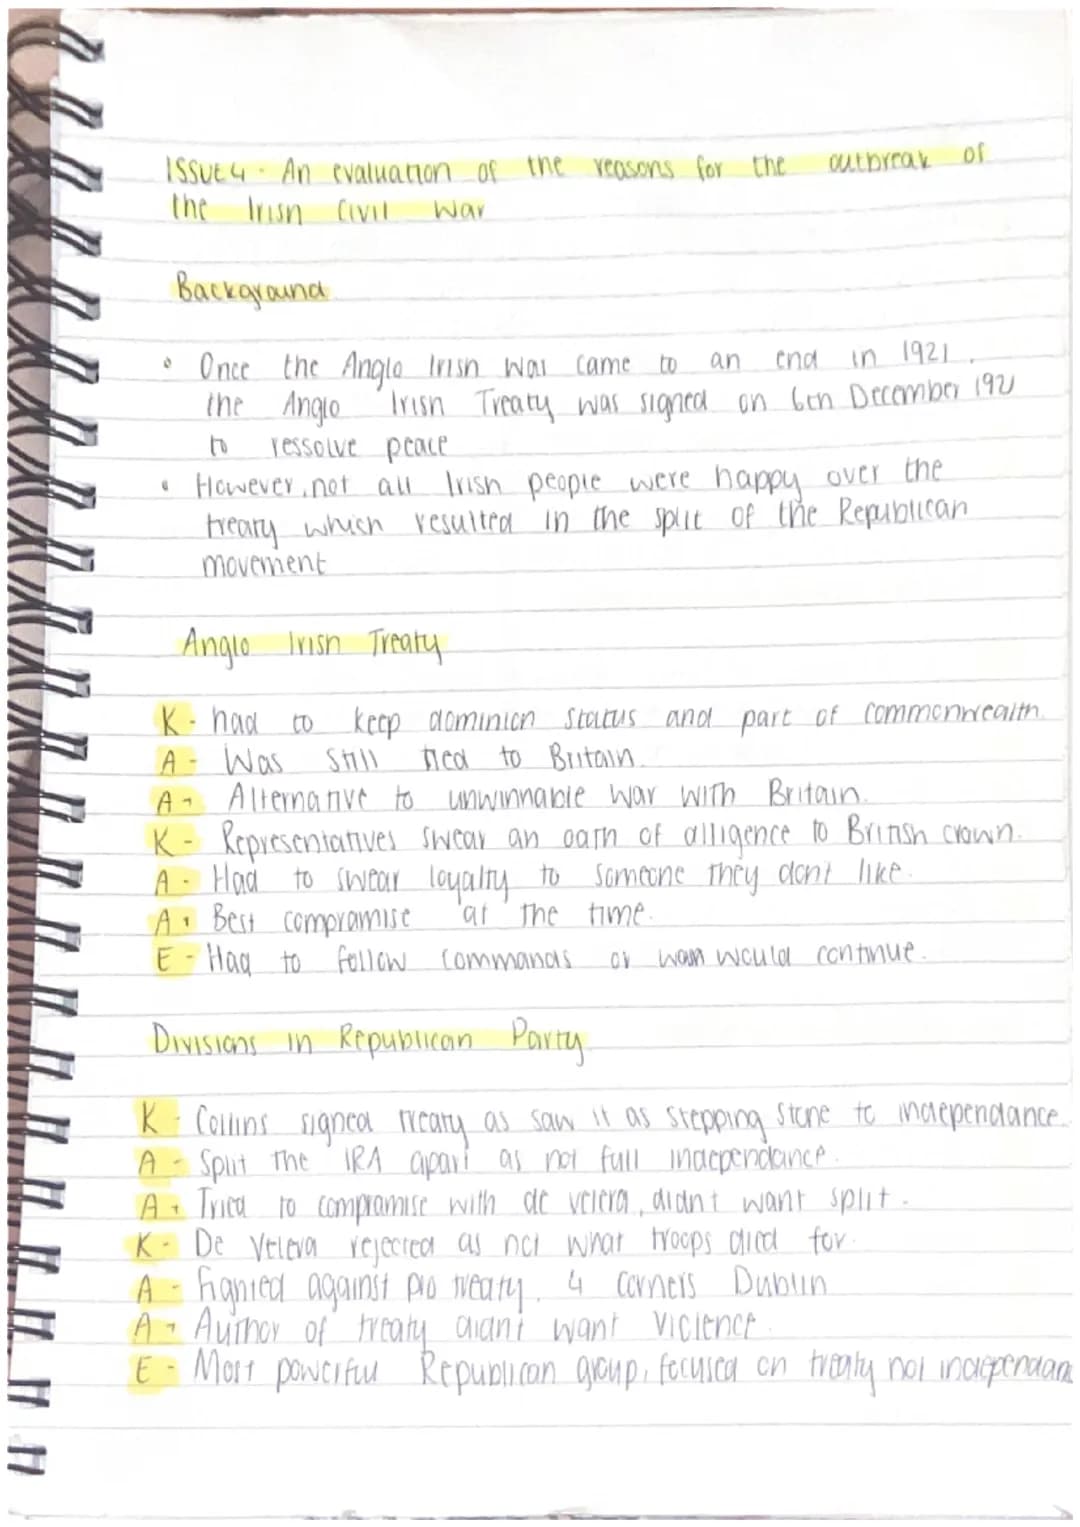 ISSUE 4 - An evaluation of the reasons for the outbreak of
the Irish Civil War
Background
• Once the Anglo Irish War came to an end in 1921,
the Anglo Irish Treaty was signed on 6th December 1921
to ressolve peace
• However, not all Irish people were happy over the
treaty which resulted in the split of the Republican
movement
Anglo Irish Treaty
K - had to keep dominion status and part of commonwealth.
A - Was still tied to Britain.
A+ Alternative to unwinnable war with Britain.
K - Representatives swear an oath of alligence to British crown.
A - Had to swear loyalty to someone they dont like.
A+ Best compromise at the time.
E - Had to follow commands or would continue.
Divisions in Republican Party
K - Collins signed treaty as saw it as stepping stone to independance.
A - Split the IRA apart as not full independance.
A+ Tried to compromise with de velera, didnt want split.
K - De Velera rejected as not what troops died for.
A - fighted against pro treaty. 4 corners Dublin
A+ Author of treaty didnt want violence.
E - Most powerful Republican group, focused on treaty not independan